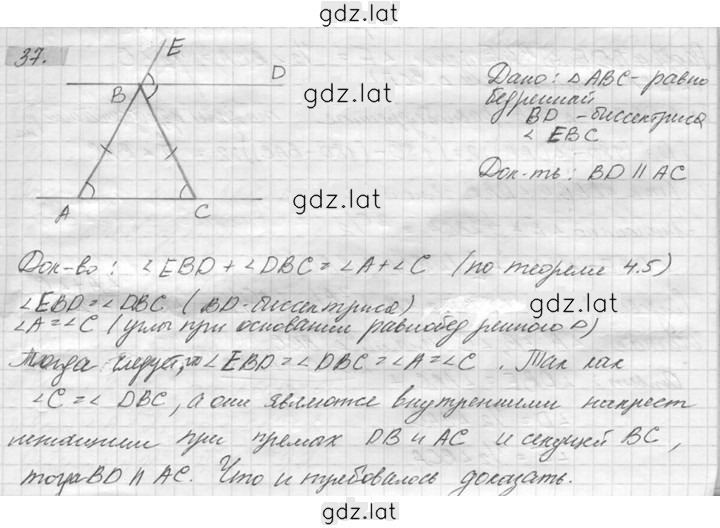 gdz.lat
37.
E
D
B
A
C
gdz.lat
gdz.lat
Дано: △ABC - равно
бедренный
BD - биссектриса
∠ EBC
Док-ть: BD ∥ AC
gdz.lat
Док-во: ∠EBD + ∠DBC = ∠A + ∠C (по теореме 4.5)
∠EBD = ∠DBC (BD - биссектриса)
∠A = ∠C (углы при основании равнобедренного △)
gdz.lat
Тогда следует, что ∠EBD = ∠DBC = ∠A = ∠C. Так как
∠C = ∠DBC, а они являются внутренними накрест
лежащими при прямых DB и AC и секущей BC,
тогда BD ∥ AC. Что и требовалось доказать.
gdz.lat